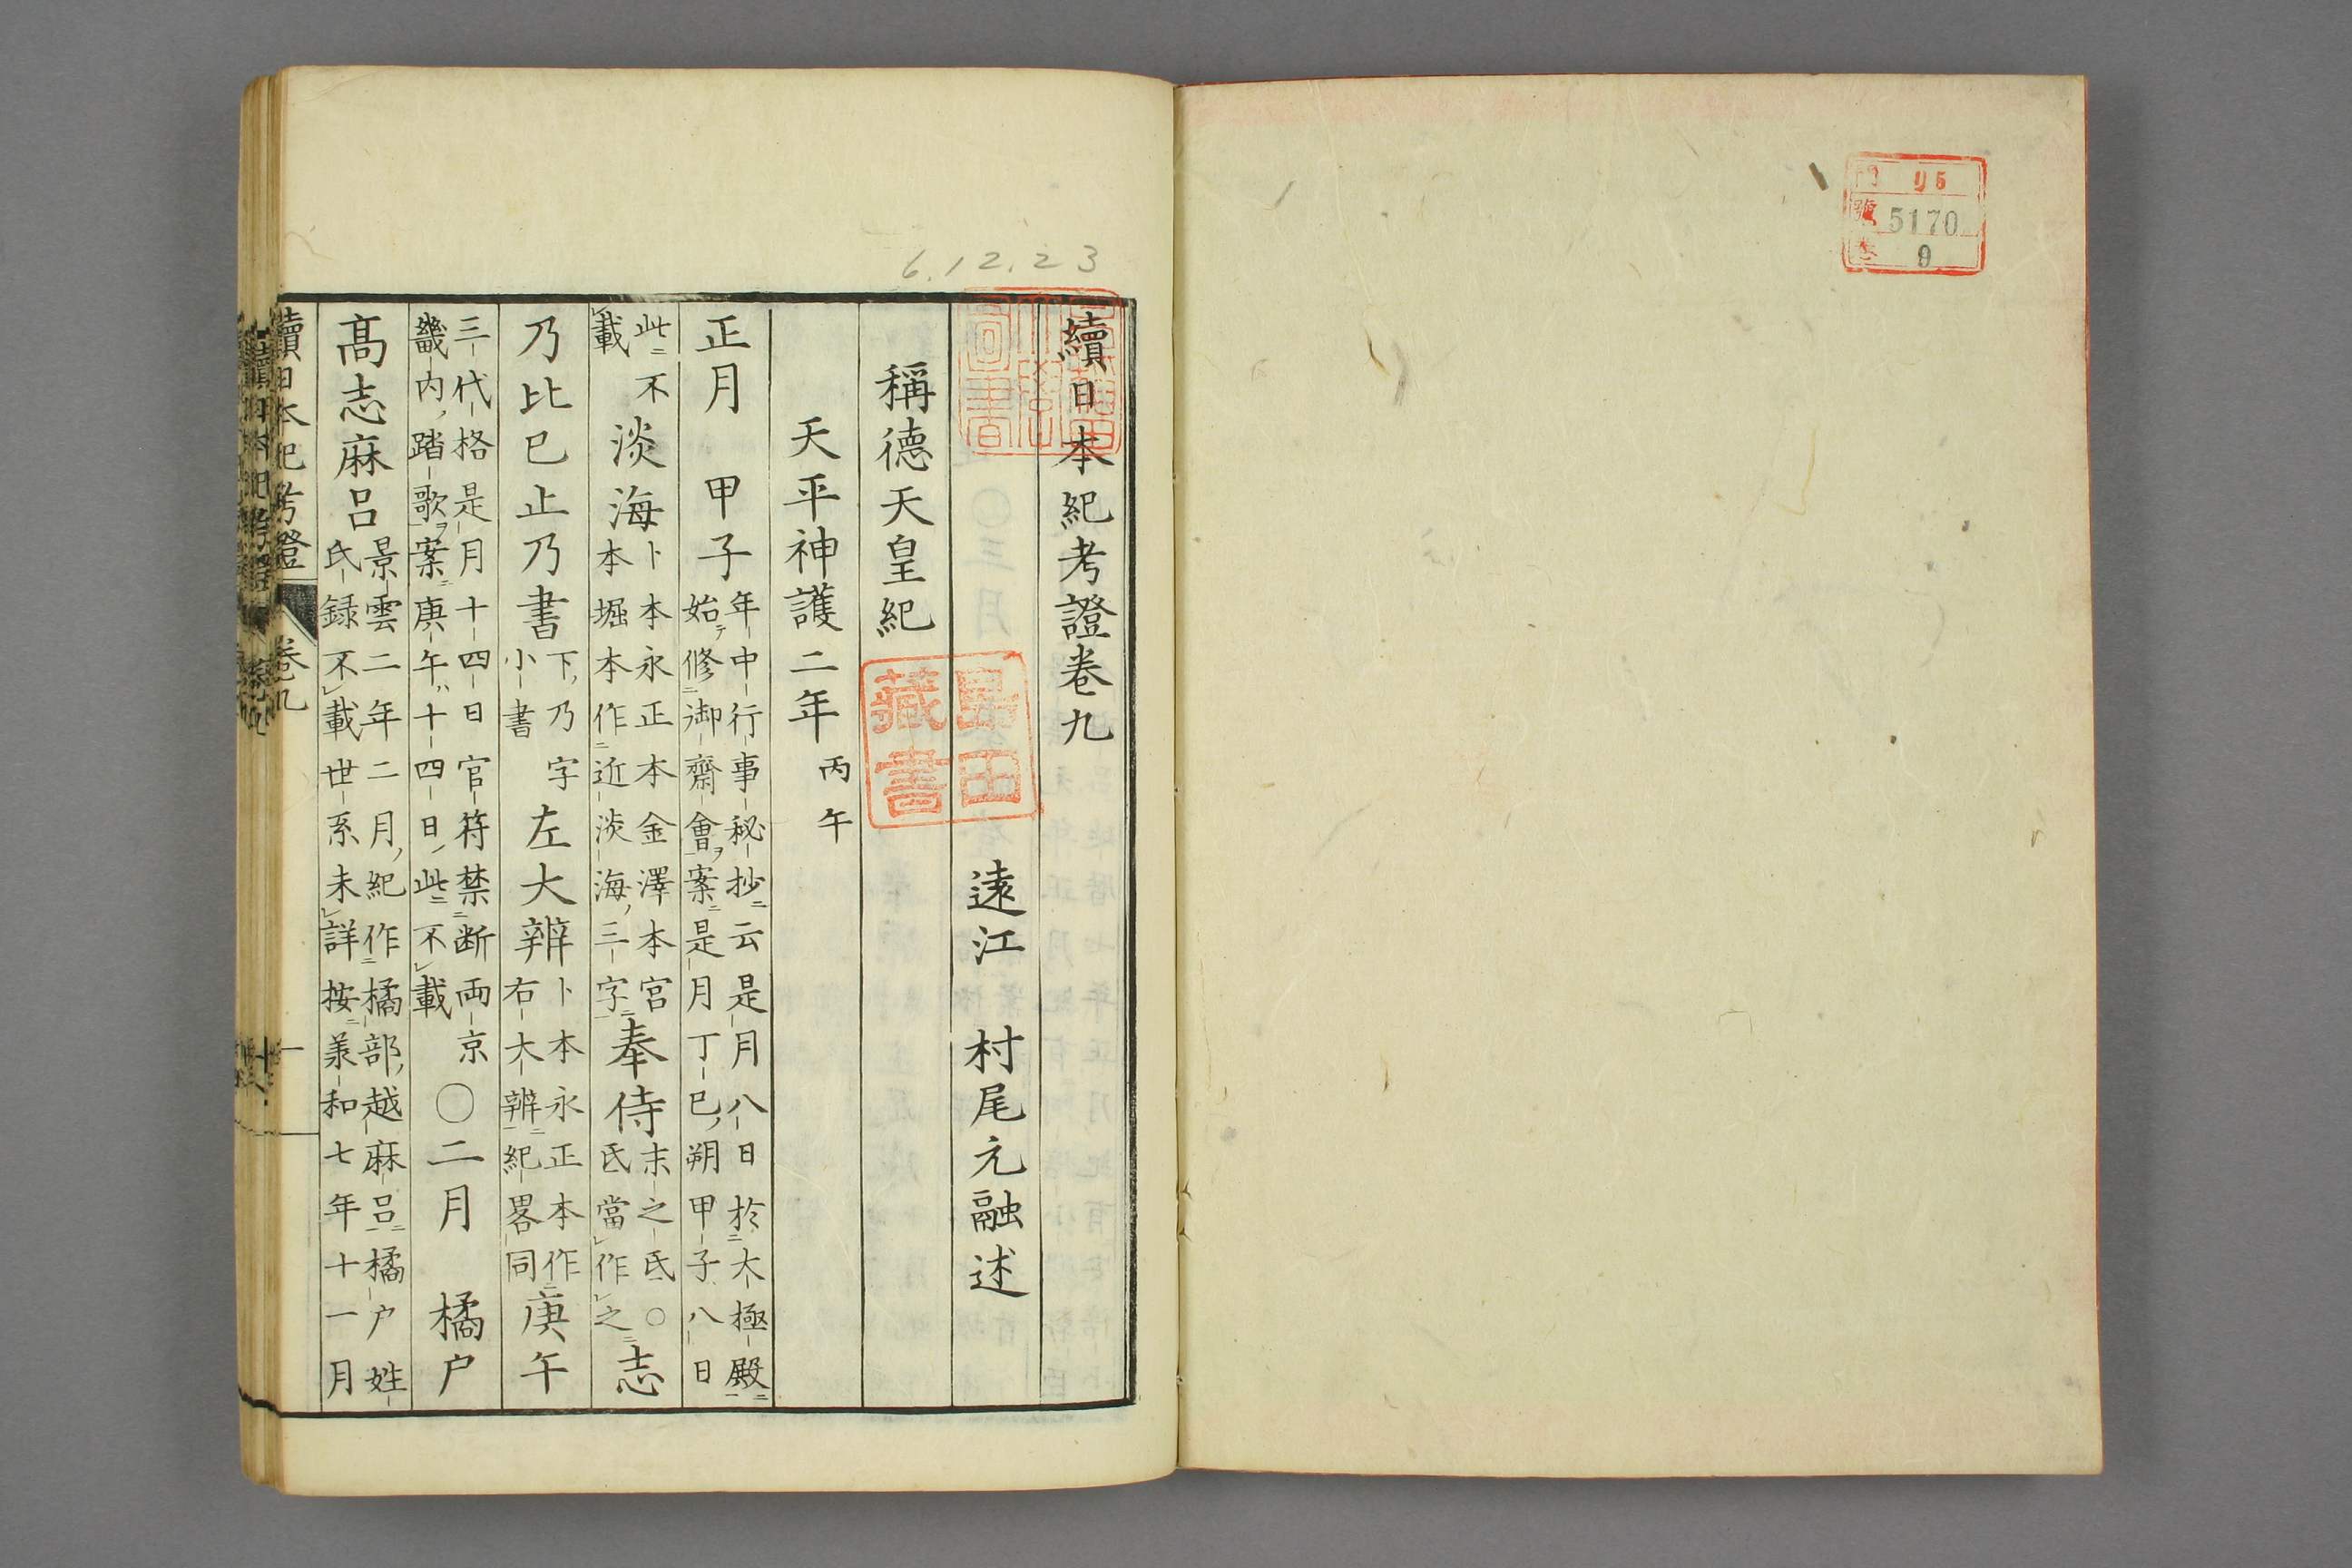 門 リ5
號 5170
卷 9
6.12.23
續日本紀考證卷九
遠江 村尾元融述
稱德天皇紀
天平神護二年丙午
正月 甲子年中行事秘抄云是月八日於大極殿
始テ修御齋會ヲ案是月丁巳朔甲子八日
此不
載 淡海卜本永正本金澤本宮
本堀本作近淡海三字 奉侍末之氐○
氐當作之 志
乃比己止乃書下乃字
小書 左大辨卜本永正本作
右大辨紀畧同 庚午
三代格是月十四日官符禁断両京
畿内踏歌ヲ案庚午十四日此不載 ○二月 橘户
髙志麻呂景雲二年二月紀作橘部越麻呂橘户姓
氏録不載世系未詳按羕和七年十一月
續日本紀考證 卷九 一
藏書